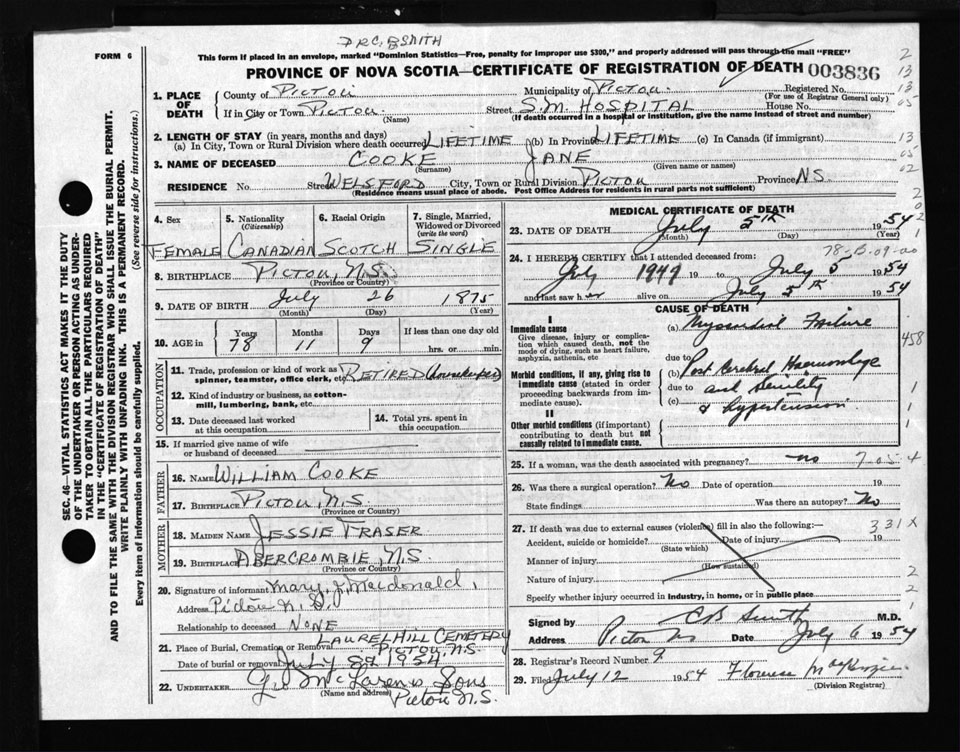 DR C. B SMITH
FORM 6
This form if placed in an envelope, marked "Dominion Statistics—Free, penalty for improper use $300," and properly addressed will pass through the mail "FREE"
PROVINCE OF NOVA SCOTIA—CERTIFICATE OF REGISTRATION OF DEATH 003836
1. PLACE OF DEATH County of PICTOU Municipality of PICTOU Registered No.
(For use of Registrar General only)
If in City or Town PICTOU (Name) Street S.M. HOSPITAL House No.
(If death occurred in a hospital or institution, give the name instead of street and number)
2. LENGTH OF STAY (in years, months and days)
(a) In City, Town or Rural Division where death occurred LIFETIME (b) In Province LIFETIME (c) In Canada (if immigrant)
3. NAME OF DECEASED COOKE JANE
(Surname) (Given name or names)
RESIDENCE No. Street WELSFORD City, Town or Rural Division PICTOU Province N.S.
(Residence means usual place of abode. Post Office Address for residents in rural parts not sufficient)
4. Sex 5. Nationality (Citizenship) 6. Racial Origin 7. Single, Married, Widowed or Divorced (write the word)
FEMALE CANADIAN SCOTCH SINGLE
8. BIRTHPLACE PICTOU, N.S.
(Province or Country)
9. DATE OF BIRTH July 26 1875
(Month) (Day) (Year)
10. AGE in Years Months Days If less than one day old
78 11 9 hrs. or min.
OCCUPATION
11. Trade, profession or kind of work as spinner, teamster, office clerk, etc. RETIRED (housekeeper)
12. Kind of industry or business, as cotton-mill, lumbering, bank, etc.
13. Date deceased last worked at this occupation
14. Total yrs. spent in this occupation
15. If married give name of wife or husband of deceased
FATHER
16. NAME WILLIAM COOKE
17. BIRTHPLACE PICTOU, N.S.
(Province or Country)
MOTHER
18. MAIDEN NAME JESSIE FRASER
19. BIRTHPLACE ABERCROMBIE, N.S.
(Province or Country)
20. Signature of informant Mary J. Macdonald,
Address Pictou N.S.
Relationship to deceased NONE
21. Place of Burial, Cremation or Removal LAUREL HILL CEMETERY PICTOU, N.S.
Date of burial or removal JULY 8th 1954
22. UNDERTAKER Geo McLaren & Sons
(Name and address) Pictou N.S.
MEDICAL CERTIFICATE OF DEATH
23. DATE OF DEATH July 5th 1954
(Month) (Day) (Year)
78-B-09-00
24. I HEREBY CERTIFY that I attended deceased from:
July 1949 19 to July 5 1954
and last saw her alive on July 5th 1954
CAUSE OF DEATH
I
Immediate cause
Give disease, injury or complication which caused death, not the mode of dying, such as heart failure, asphyxia, asthenia, etc
(a) Myocardial Failure
due to
Morbid conditions, if any, giving rise to immediate cause (stated in order proceeding backwards from immediate cause).
(b) Post Cerebral Haemorrhage
due to and Senility
(c) & hypertension
II
Other morbid conditions (if important) contributing to death but not causally related to immediate cause.
458
25. If a woman, was the death associated with pregnancy? no
26. Was there a surgical operation? No Date of operation 19
State findings Was there an autopsy? No
27. If death was due to external causes (violence) fill in also the following:—
331X
Accident, suicide or homicide? (State which) Date of injury 19
Manner of injury (How sustained)
Nature of injury
Specify whether injury occurred in industry, in home, or in public place
Signed by C B Smith M.D.
Address Pictou NS Date July 6 1954
28. Registrar's Record Number 9
29. Filed July 12 1954 Florence MacKenzie
(Division Registrar)
SEC. 46—VITAL STATISTICS ACT MAKES IT THE DUTY OF THE UNDERTAKER OR PERSON ACTING AS UNDERTAKER TO OBTAIN ALL THE PARTICULARS REQUIRED IN THE "CERTIFICATE OF REGISTRATION OF DEATH" AND TO FILE THE SAME WITH THE DIVISION REGISTRAR WHO SHALL ISSUE THE BURIAL PERMIT.
WRITE PLAINLY WITH UNFADING INK. THIS IS A PERMANENT RECORD.
Every item of information should be carefully supplied. (See reverse side for instructions.)